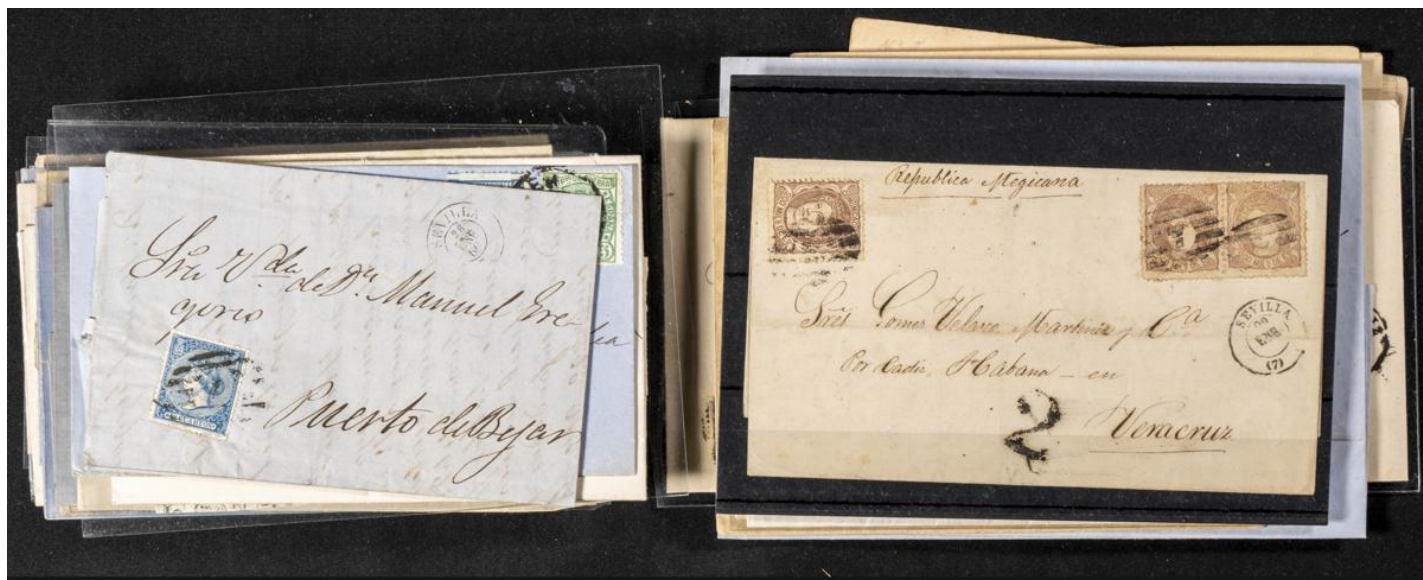 SEVILLA
28
ENE
Sra V.da de Dn. Manuel Gre-
gorio
Puerto de Bejar
Republica Megicana
Sres Gomez Velasco Martinez y Ca
Por Cadiz, Habana - en
Veracruz
2
SEVILLA
ENE
(7)